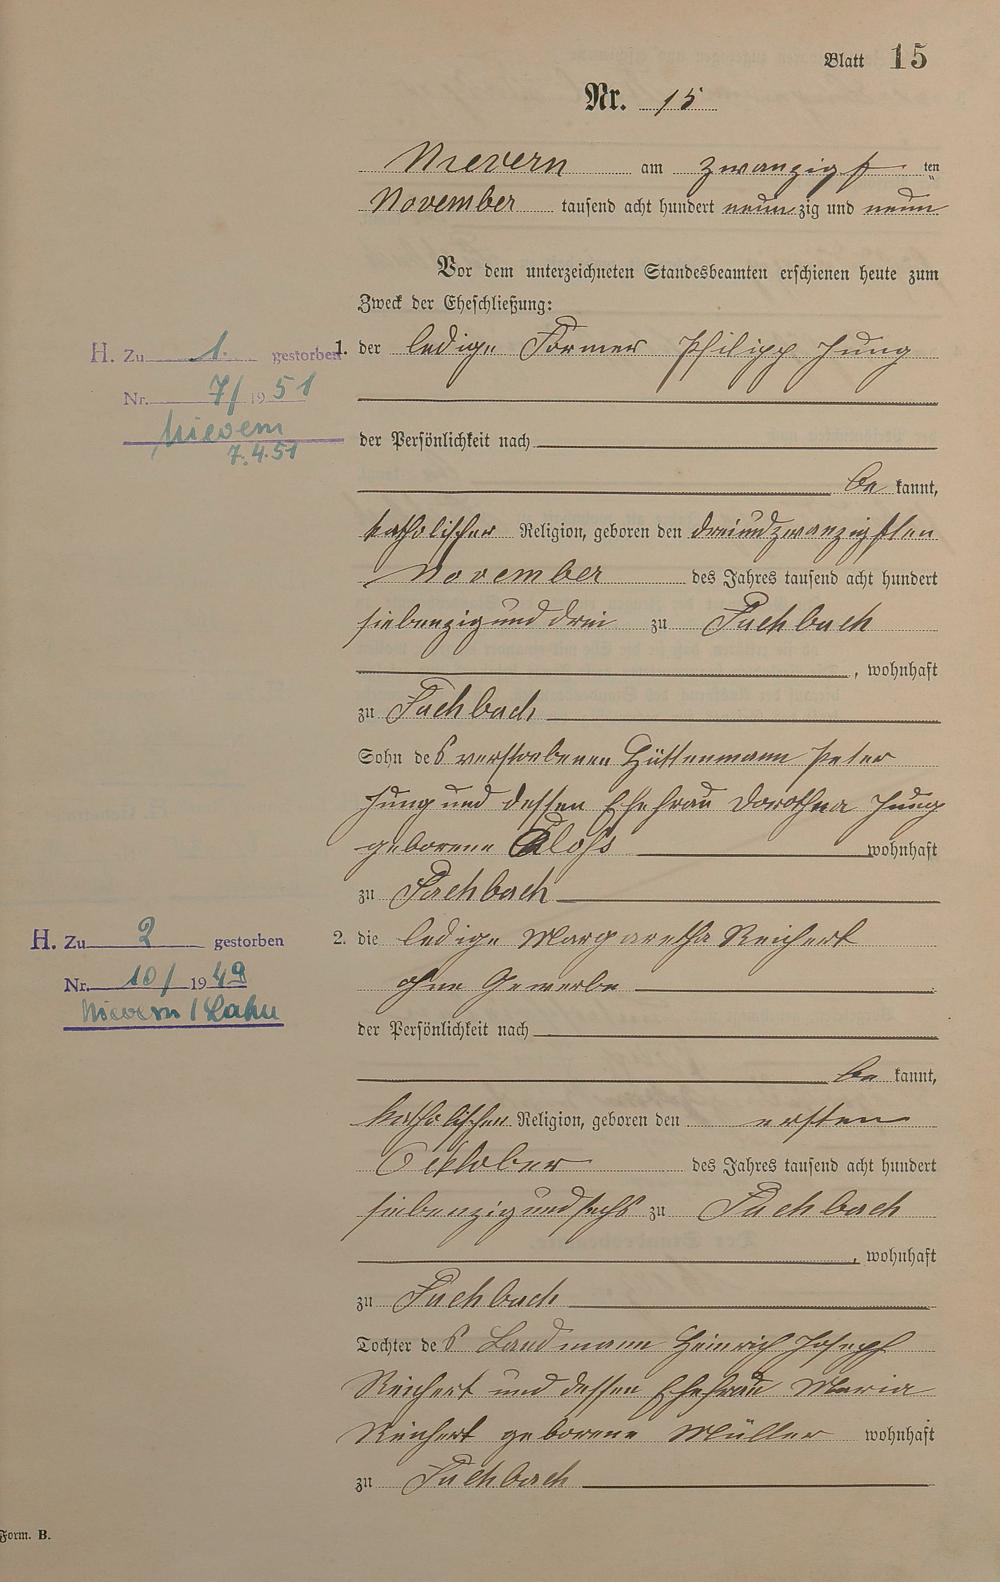 Blatt 15
Nr. 15
Nievern am zwanzigsten
November tausend acht hundert neunzig und neun
Vor dem unterzeichneten Standesbeamten erschienen heute zum
Zweck der Eheschließung:
1. der ledige Former Philipp Jung
der Persönlichkeit nach
bekannt,
katholischer Religion, geboren den dreiundzwanzigsten
November des Jahres tausend acht hundert
siebenzig und drei zu Fachbach
, wohnhaft
zu Fachbach
Sohn des verstorbenen Hüttenmann Peter
Jung und dessen Ehefrau Dorothea Jung
geborene Kloß wohnhaft
zu Fachbach
2. die ledige Margaretha Reichert
ohne Gewerbe
der Persönlichkeit nach
bekannt,
katholischer Religion, geboren den ersten
October des Jahres tausend acht hundert
siebenzig und sechs zu Fachbach
, wohnhaft
zu Fachbach
Tochter des Landmann Heinrich Joseph
Reichert und dessen Ehefrau Maria
Reichert geborene Müller wohnhaft
zu Fachbach
H. Zu 1. gestorben
Nr. 7/1951
Nievern
7.4.51
H. Zu 2 gestorben
Nr. 10/1949
Nievern/Lahn
Form. B.